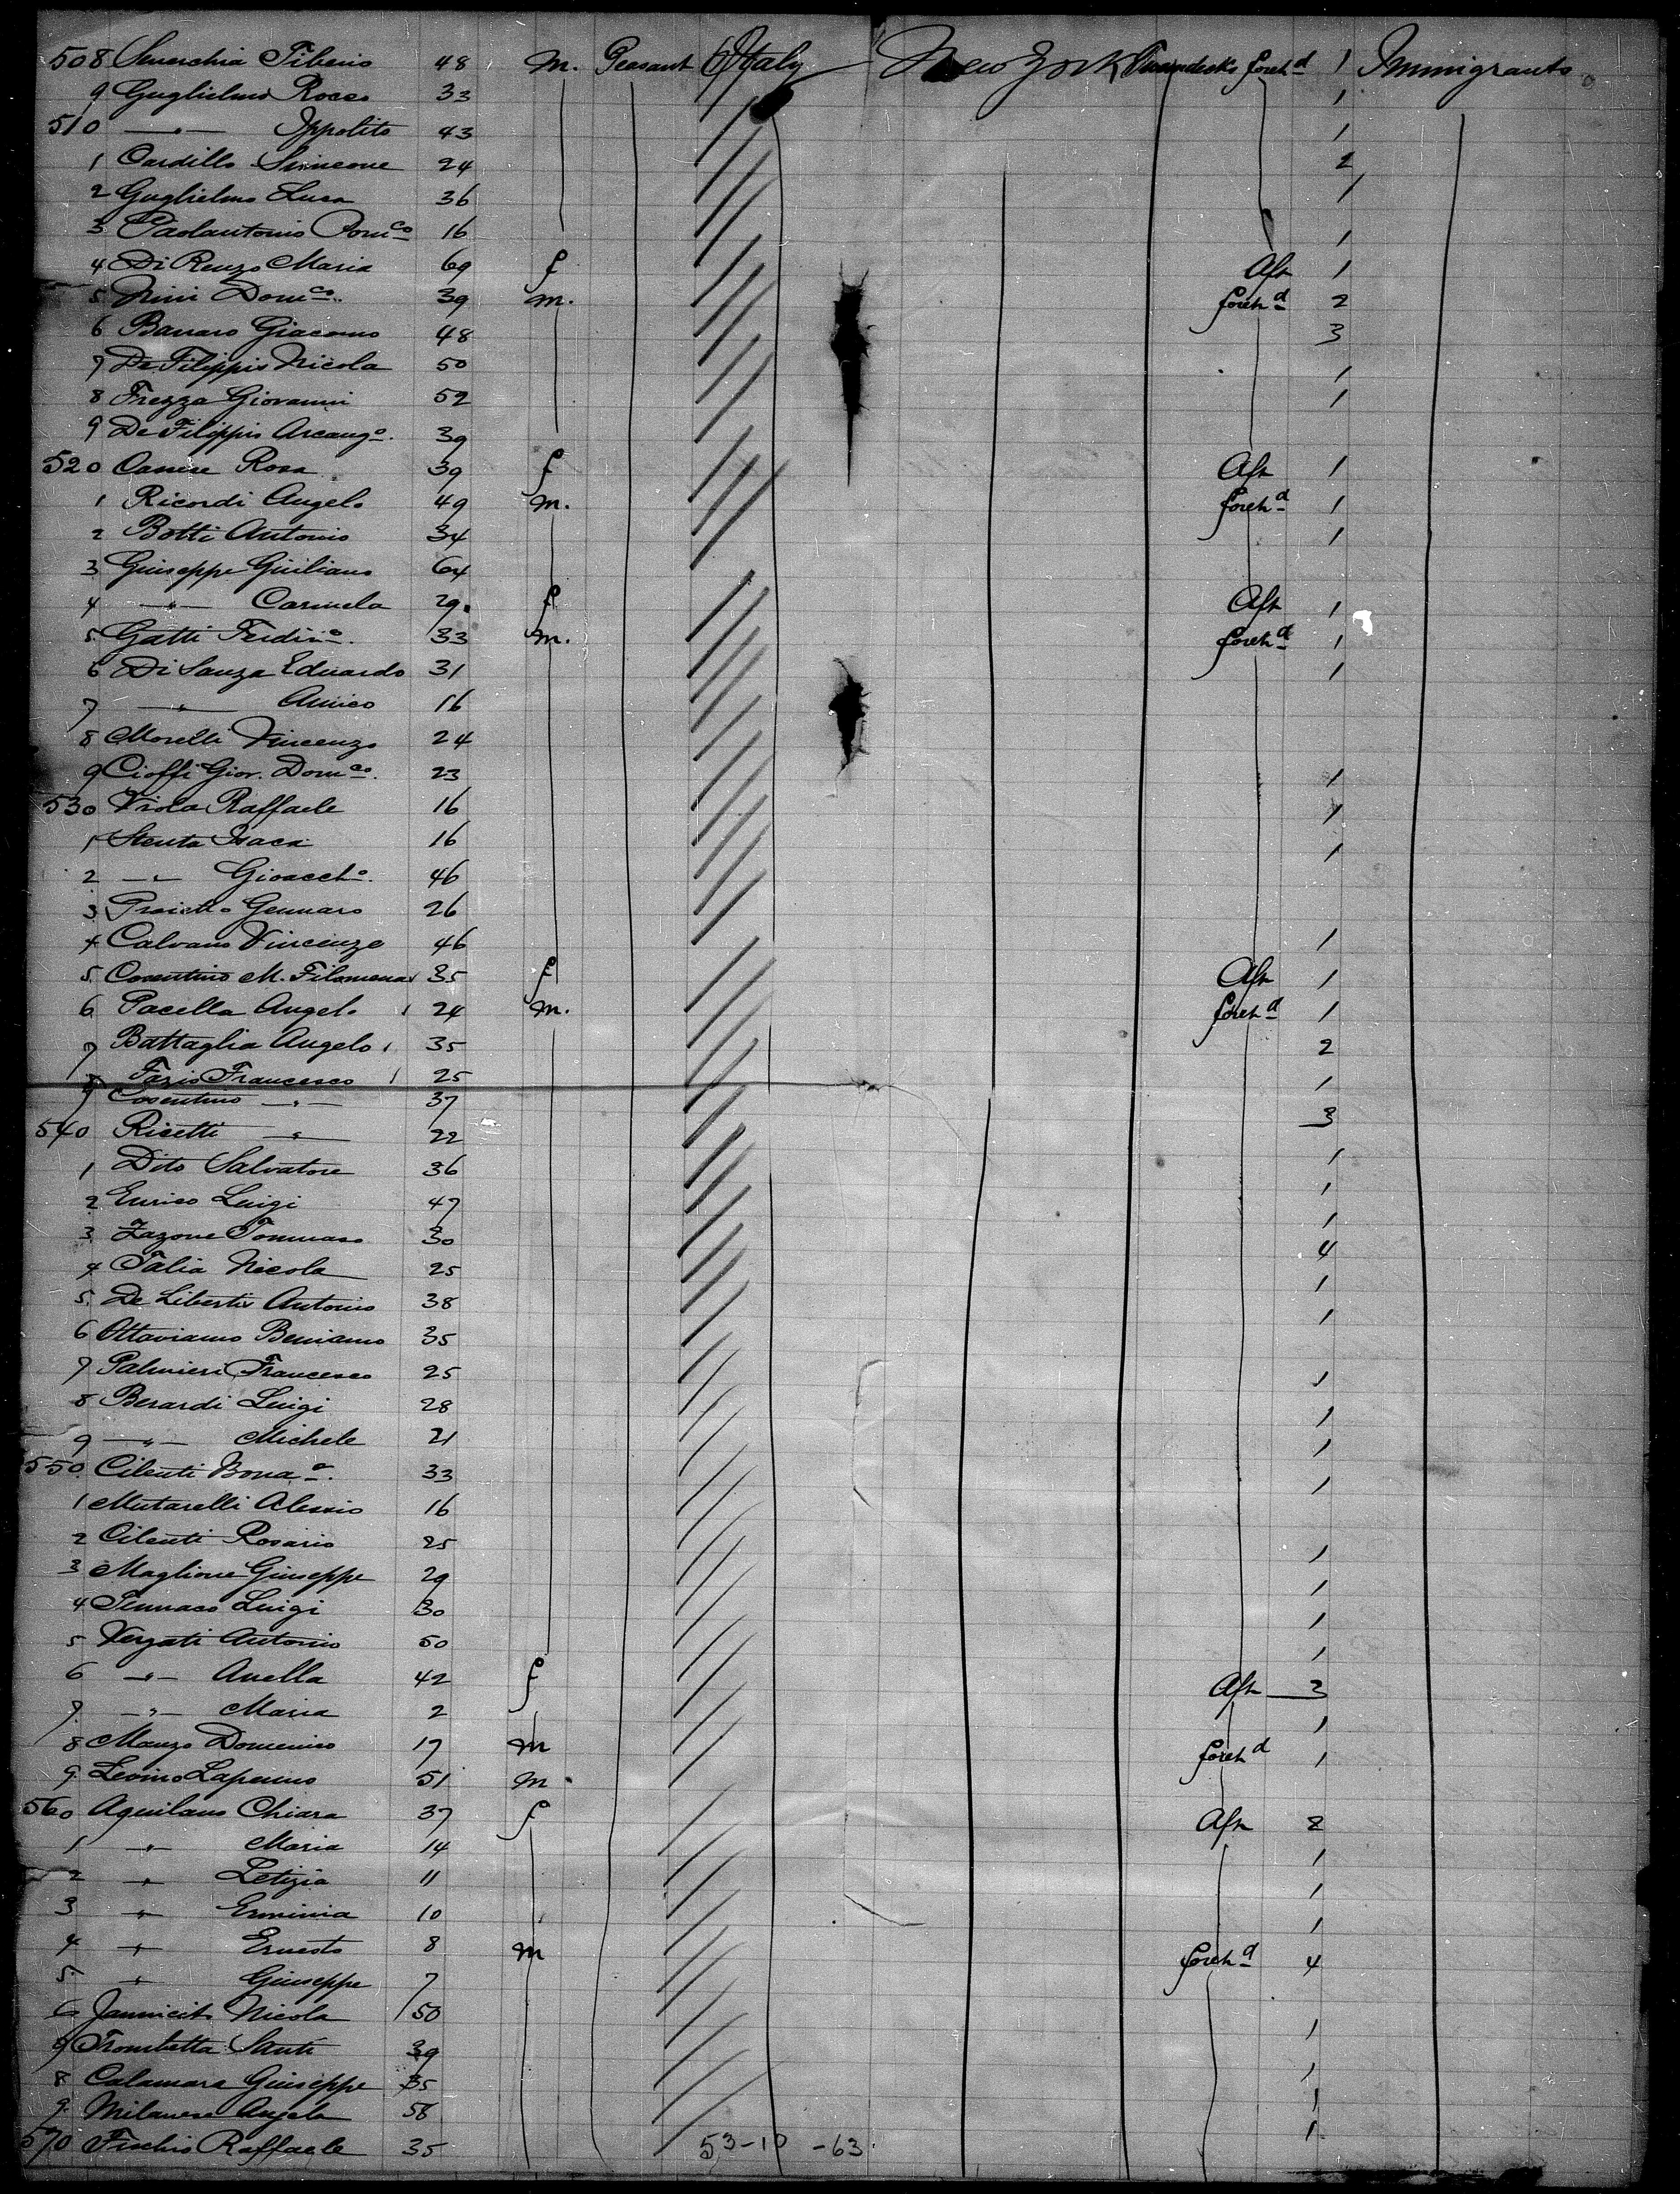 508 Senerchia Tiberio 48 m. Peasant Italy New York Tweendecks foreh d 1 Immigrants
9 Guglielmo Rocco 33 1
510 —"— Ippolito 43 1
1 Cardillo Simeone 24 2
2 Guglielmo Luca 36 1
3 Paolantonio Dom co 16 1
4 Di Renzo Maria 69 f Aft 1
5 Nini Dom co 39 m. foreh d 2
6 Banaro Giacomo 48 3
7 De Filippis Nicola 50 1
8 Frezza Giovanni 52 1
9 De Filippis Arcang o. 39
520 Canese Rosa 39 f Aft 1
1 Ricordi Angelo 49 m. foreh d 1
2 Botti Antonio 34 1
3 Guiseppe Giuliano 64
4 —"— Carmela 29 f Aft 1
5 Gatti Ferdin o. 33 m. foreh d 1
6 Di Sanza Eduardo 31 1
7 —"— Amico 16
8 Morelli Vincenzo 24
9 Cioffi Giov. Dom co. 23 1
530 Viola Raffaele 16 1
1 Stenta Isaca 16 1
2 —"— Gioacch o. 46
3 Proietto Gennaro 26
4 Calvano Vincenzo 46 1
5 Cosentino M. Filomena 35 f Aft 1
6 Pacella Angelo 24 m. foreh d 1
7 Battaglia Angelo 35 2
8 Fazio Francesco 25 1
9 Cosentino —"— 37 3
540 Ricetti —"— 22
1 Dito Salvatore 36 1
2 Enrico Luigi 47 1
3 Zazone Tommaso 30 1
4 Talia Nicola 25 4
5 De Libertis Antonio 38 1
6 Ottaviano Beniamo 35 1
7 Palmieri Francesco 25 1
8 Berardi Luigi 28 1
9 —"— Michele 21 1
550 Cilenti Bona a. 33 1
1 Mutarelli Alessio 16
2 Cilenti Rosario 25 1
3 Maglione Giuseppe 29 1
4 Pennaco Luigi 30 1
5 Vergati Antonio 50 1
6 —"— Anella 42 f Aft 3
7 —"— Maria 2 1
8 Manzo Domenico 17 m foreh d 1
9 Leonino Lapenno 51 m.
560 Aquilano Chiara 37 f Aft 2
1 " Maria 14 1
2 " Letizia 11 1
3 " Erminia 10 1
4 " Ernesto 8 m foreh d 4
5 " Giuseppe 7
6 Jannicito Nicola 50 1
7 Trombetta Santi 39 1
8 Calamara Giuseppe 35 1
9 Milanese Angelo 58 1
570 Fischio Raffaele 35 53-10-63